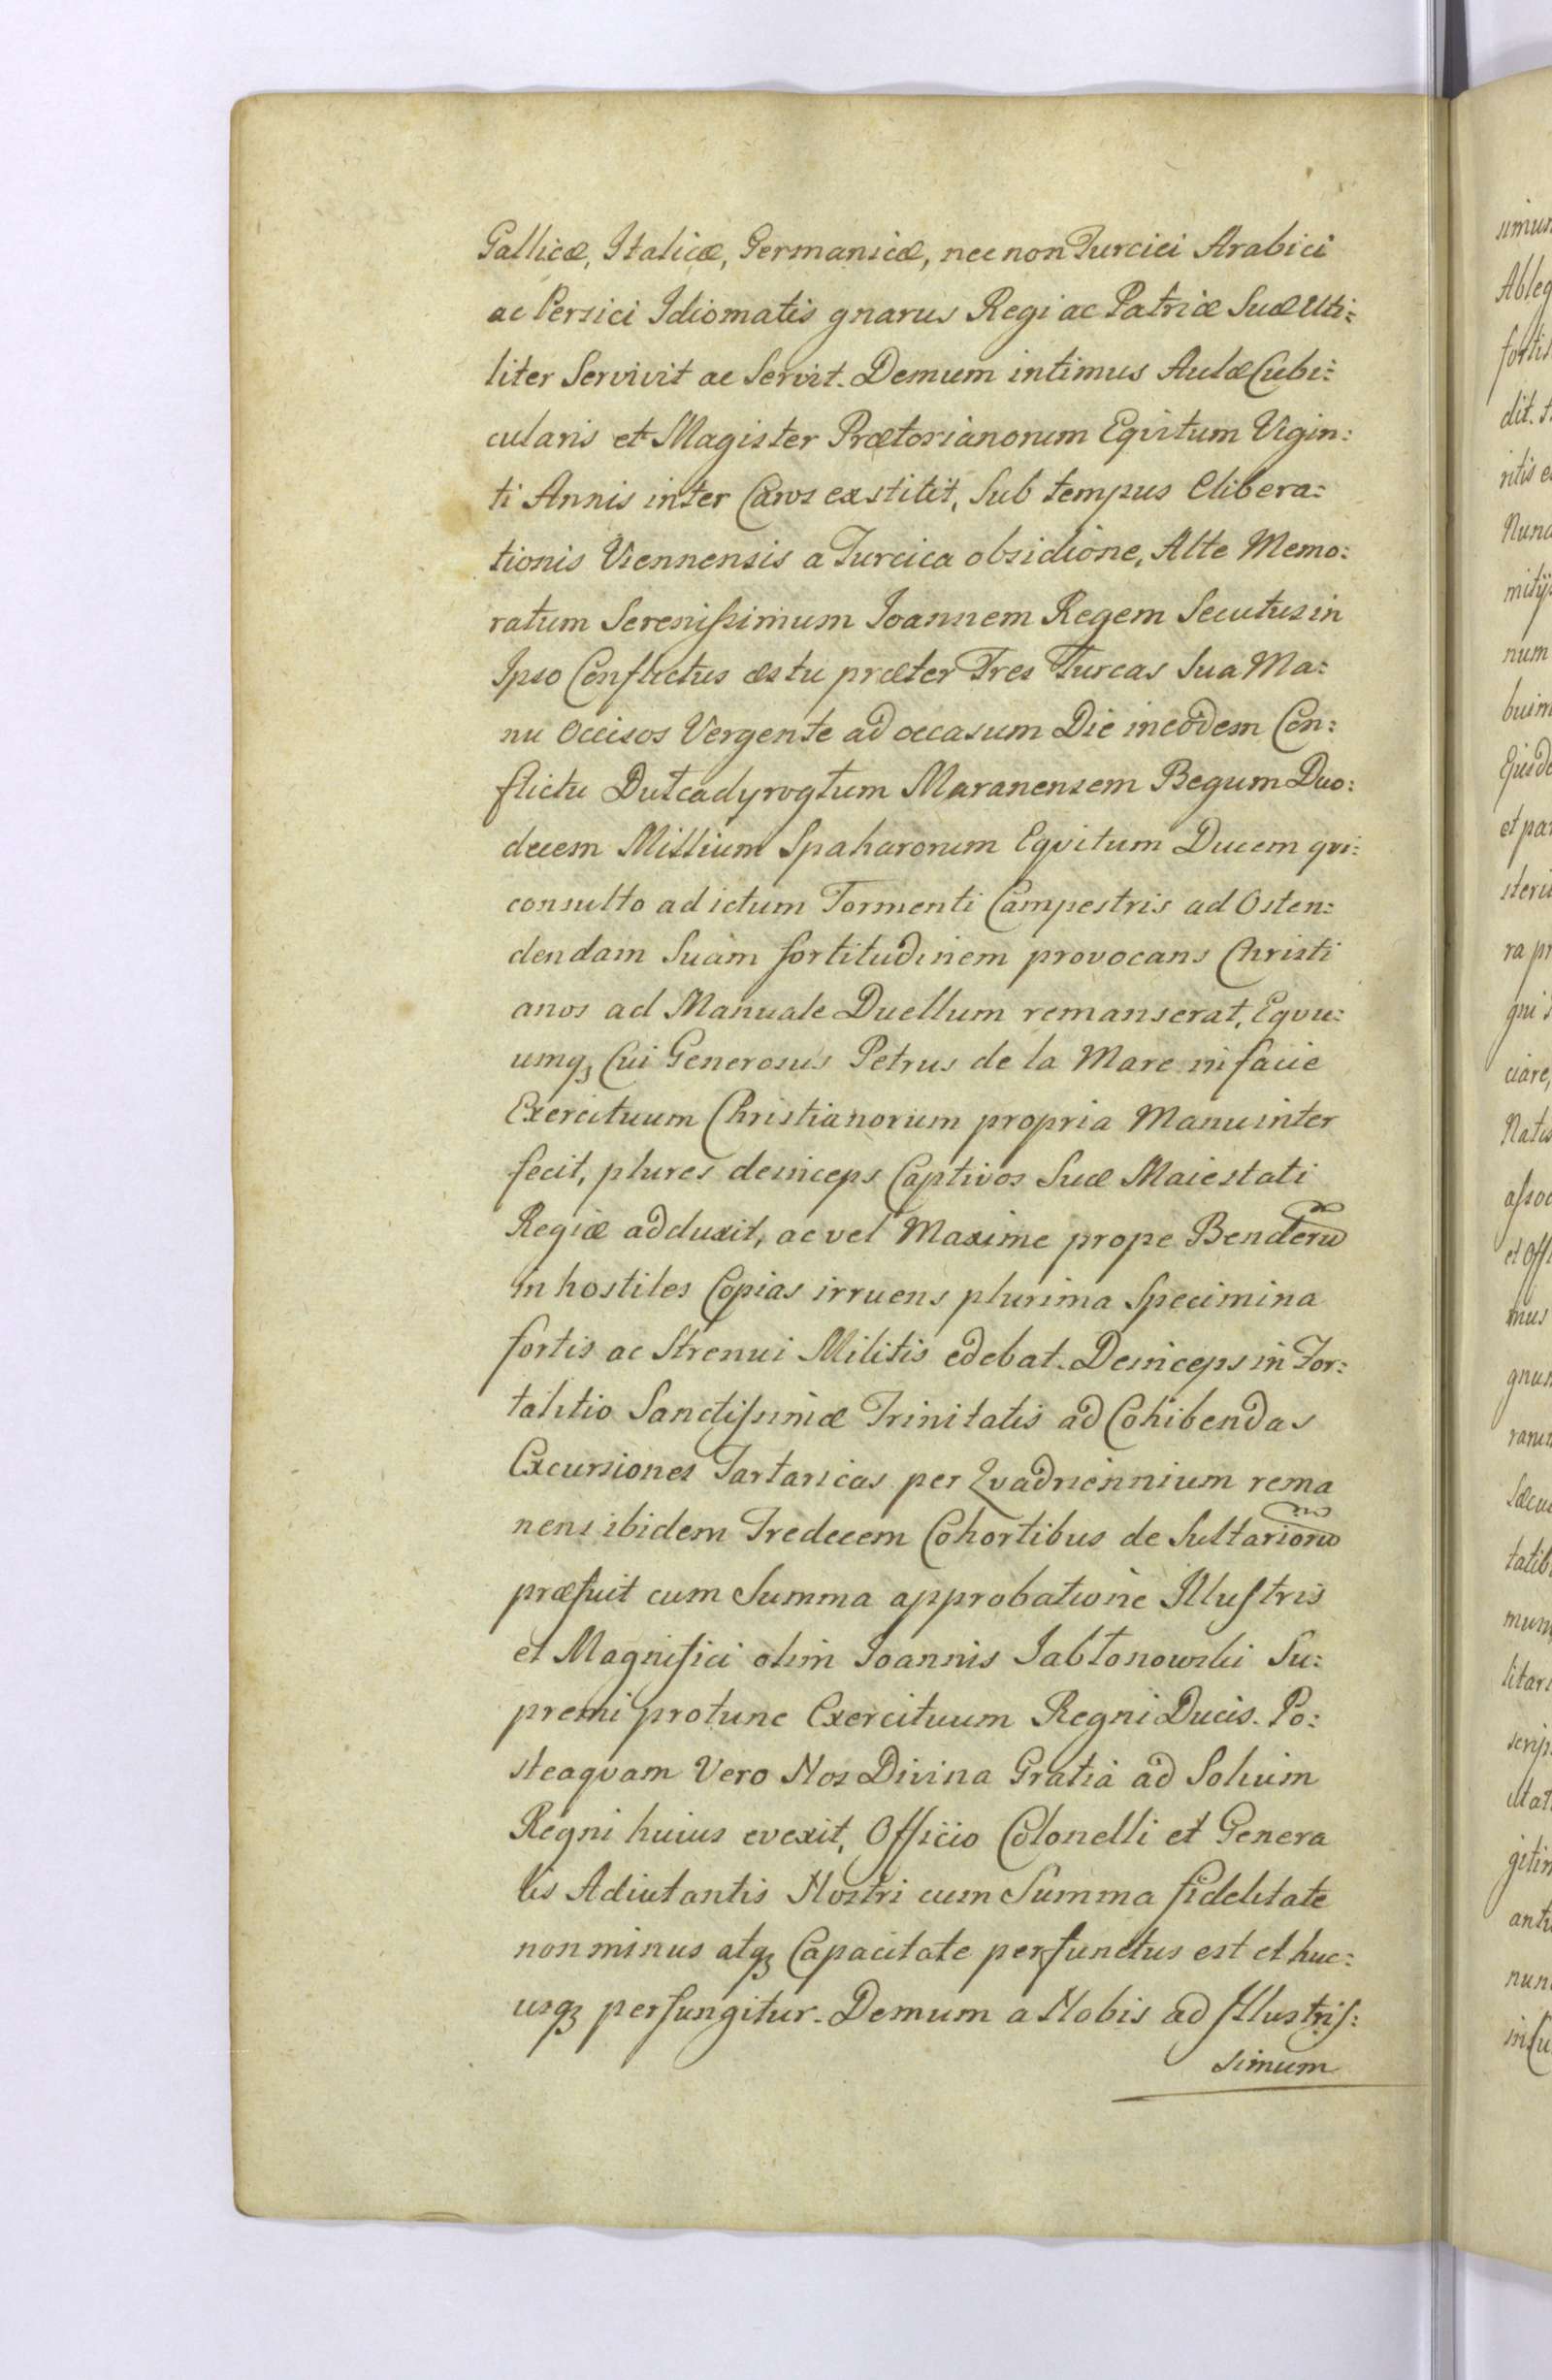 Gallicæ, Italicæ, Germanicæ, nec non Turcici Arabici
ac Persici Idiomatis gnarus Regi ac Patriæ Suæ Uti:
liter Servivit ac Servit. Demum intimus Aulæ Cubi:
cularis et Magister Prætorianorum Eqvitum Vigin:
ti Annis inter Caros exstitit, Sub tempus Elibera:
tionis Viennensis a Turcica obsidione, Alte Memo:
ratum Serenissimum Ioannem Regem Secutus in
Ipso Conflictus æstu præter Tres Turcas Sua Ma:
nu Occisos Vergente ad occasum Die in eodem Con:
flictu Dutcadyrogtum Maranensem Begum Duo:
decem Millium Spaharorum Eqvitum Ducem qvi:
consulto ad ictum Tormenti Campestris ad Osten:
dendam Suam fortitudinem provocans Christi
anos ad Manuale Duellum remanserat, Eqvu:
umq₃ Cui Generosus Petrus de la Mare in facie
Exercituum Christianorum propria Manu inter
fecit, plures deinceps Captivos Suæ Maiestati
Regiæ adduxit, ac vel Maxime prope Benderu
in hostiles Copias irruens plurima Specimina
fortis ac Strenui Militis edebat. Deinceps in For:
talitio Sanctissimæ Trinitatis ad Cohibendas
Excursiones Tartaricas per Qvadriennium rema
nens ibidem Tredecem Cohortibus de Sultarioru
præfuit cum Summa approbatione Illustris
et Magnifici olim Ioannis Jabłonowski Su:
premi protunc Exercituum Regni Ducis. Po:
steaqvam Vero Nos Divina Gratia ad Solium
Regni huius evexit, Officio Colonelli et Genera
lis Adiutantis Nostri cum Summa fidelitate
non minus atq₃ Capacitate perfunctus est et huc:
usq₃ perfungitur. Demum a Nobis ad Illustris:
simum